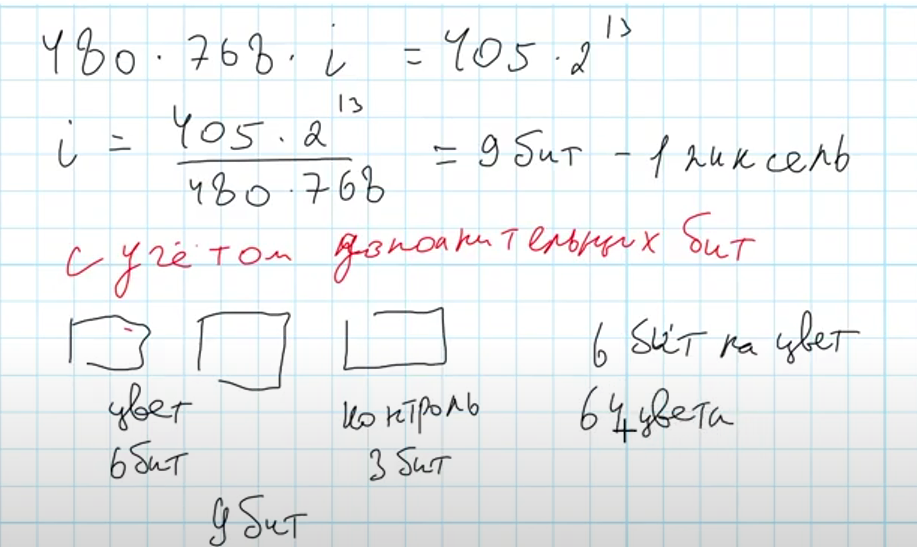 480 · 768 · i = 405 · 2^13
i = (405 · 2^13) / (480 · 768) = 9 бит - 1 пиксель
с учётом дополнительных бит
цвет контроль 6 бит на цвет
6 бит 3 бит 64 цвета
9 бит